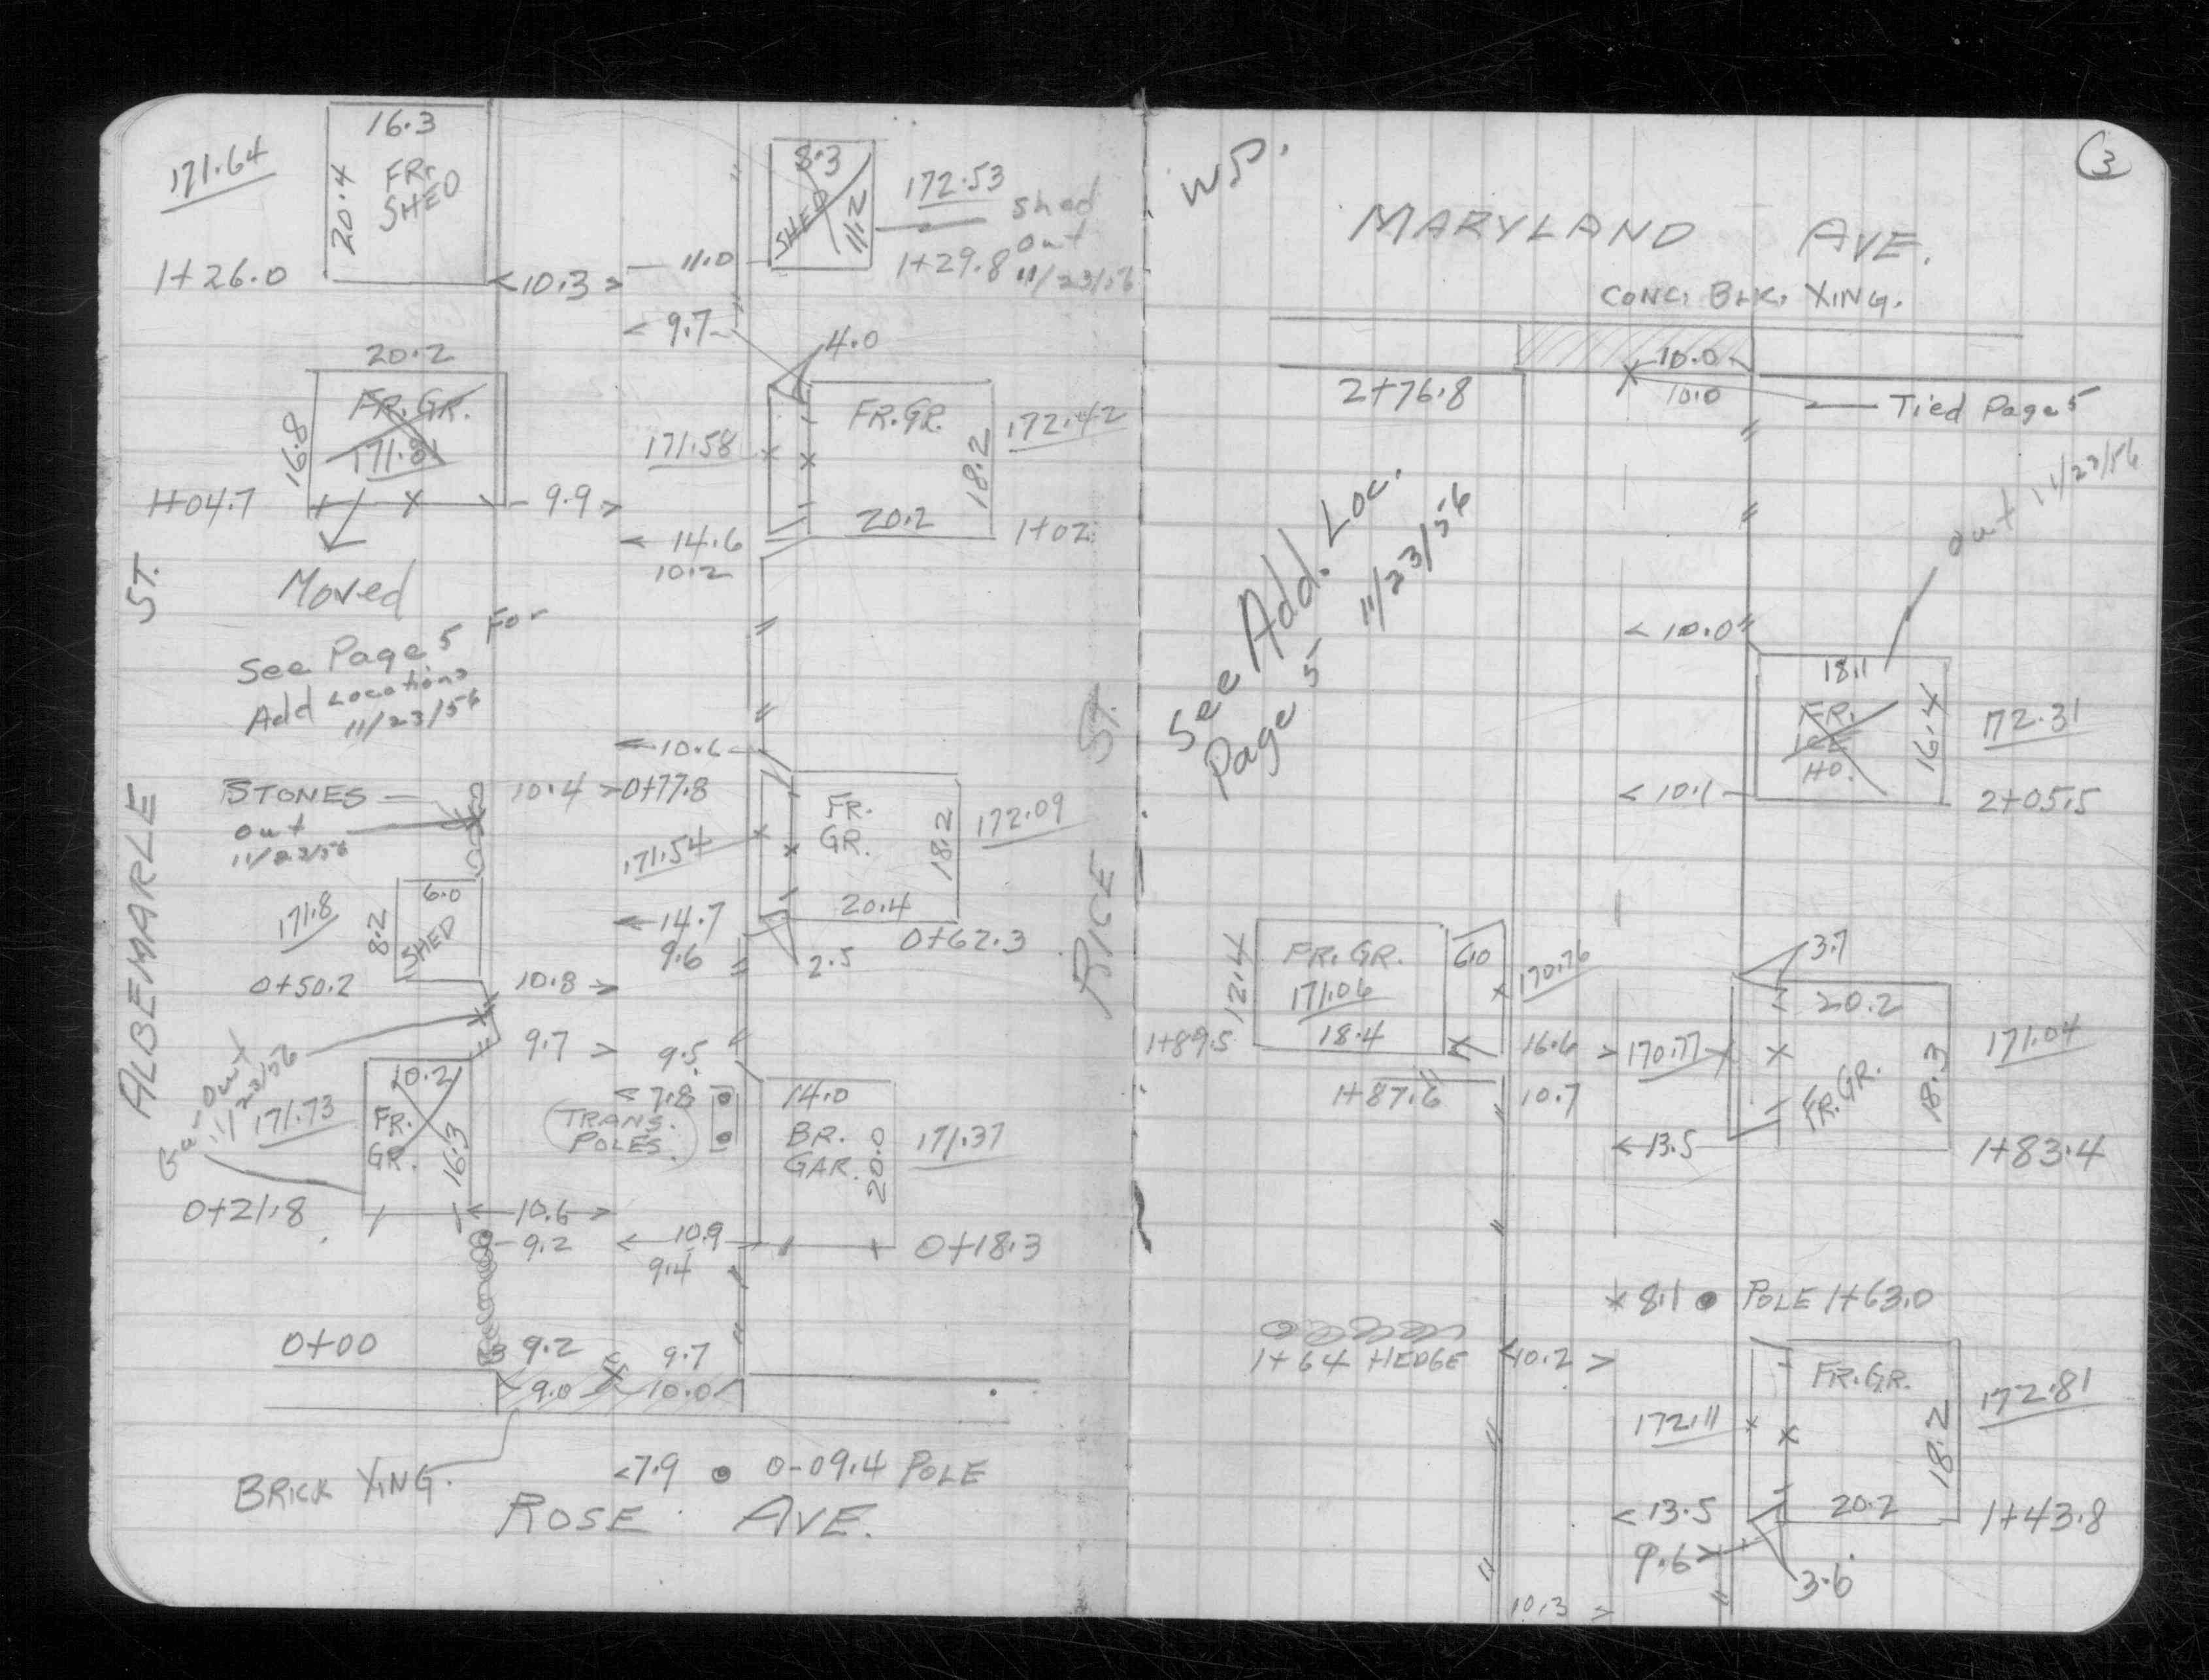 171.64
16.3
20.4
FR.
SHED
1+26.0
<10.3>
8.3
SHED
11.2
172.53
shed
out
11/23/56
1+29.8
11.0
< 9.7
4.0
20.2
16.8
FR. GR.
171.81
1+04.7
9.9 >
171.58
FR. GR.
18.2
172.42
20.2
1+02
< 14.6
10.2
Moved
See Page 5 For
Add Locations
11/23/56
ALBEMARLE ST.
RICE ST.
< 10.6
STONES
out
11/23/56
10.4 >
0+77.8
171.54
FR.
GR.
18.2
172.09
20.4
0+62.3
< 14.7
9.6
2.5
171.8
8.2
6.0
SHED
0+50.2
10.8 >
9.7 >
9.5
Gar out
11/23/56
171.73
10.2
FR.
GR.
16.3
0+21.8
< 7.8
(TRANS.
POLES.)
14.0
BR.
GAR.
20.0
171.37
0+18.3
<10.6>
9.2
< 10.9
9.4
0+00
9.2
9.7
9.0
10.0
BRICK XING.
<7.9
0-09.4 POLE
ROSE AVE.
3
W.P.
MARYLAND AVE.
CONC. BLK. XING.
10.0
10.0
2+76.8
Tied Page 5
out 11/23/56
See Add. Loc.
Page 5 11/23/56
< 10.0
18.1
FR.
HO.
16.4
172.31
2+05.5
< 10.1
12.4
FR. GR.
171.06
18.4
6.0
170.76
1+89.5
16.6 >
1+87.6
10.7
3.7
20.2
170.77
FR. GR.
18.3
171.04
1+83.4
< 13.5
8.1
POLE 1+63.0
1+64 HEDGE
<10.2 >
FR. GR.
172.81
172.11
18.2
20.2
1+43.8
< 13.5
9.6>
3.6
10.3 >